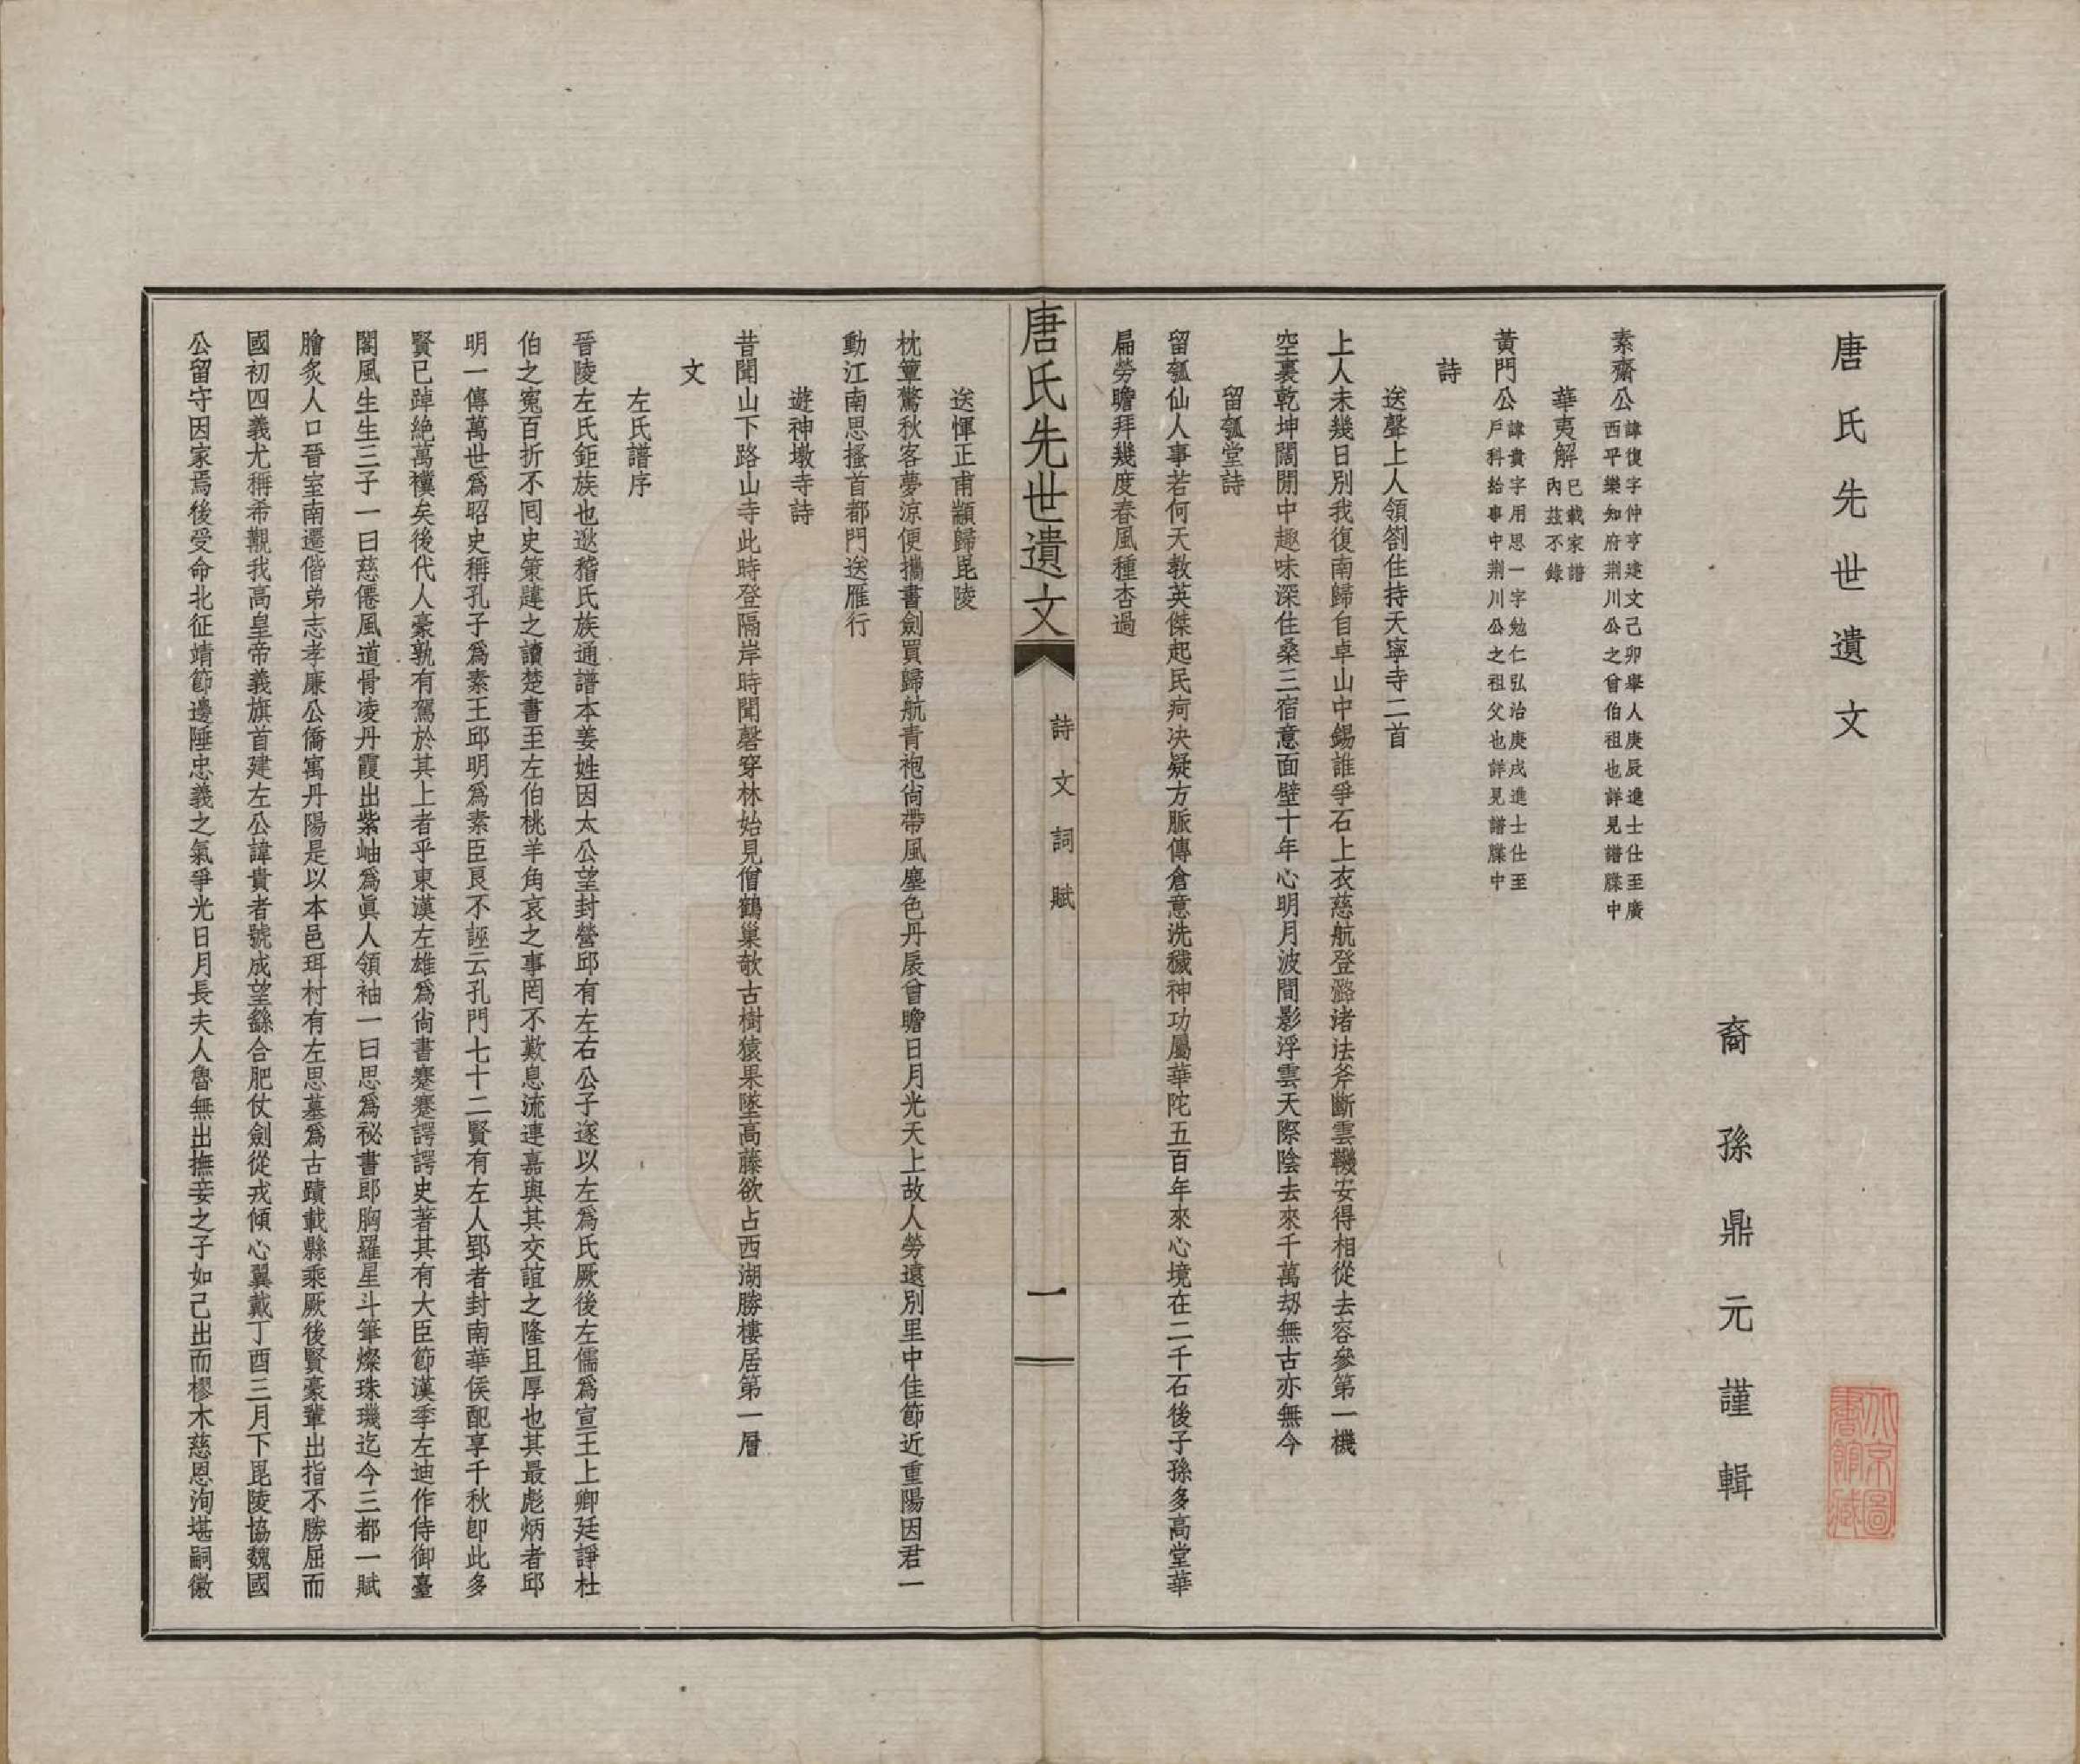 唐氏先世遺文
裔孫鼎元謹輯
素齋公諱復字仲亨建文己卯舉人庚辰進士仕至廣西平樂知府荆川公之曾伯祖也詳見譜牒中
華夷解已載家譜內茲不錄
黃門公諱貴字用思一字勉仁弘治庚戌進士仕至戶科給事中荆川公之祖父也詳見譜牒中
詩
送聲上人領劄住持天寧寺二首
上人未幾日別我復南歸自卓山中錫誰爭石上衣慈航登潞渚法斧斷雲鞿安得相從去容參第一機
空裏乾坤闊閒中趣味深住桑三宿意面壁十年心明月波間影浮雲天際陰去來千萬刼無古亦無今
留瓠堂詩
留瓠仙人事若何天教英傑起民疴决疑方脈傳倉意洗穢神功屬華陀五百年來心境在二千石後子孫多高堂華
扁勞瞻拜幾度春風種杏過
唐氏先世遺文
詩文詞賦
一
送惲正甫顓歸毘陵
枕簟驚秋客夢涼便攜書劍買歸航青袍尙帶風塵色丹扆曾瞻日月光天上故人勞遠別里中佳節近重陽因君一
動江南思搔首都門送雁行
遊神墩寺詩
昔聞山下路山寺此時登隔岸時聞磬穿林始見僧鶴巢欹古樹猿果墜高藤欲占西湖勝樓居第一層
文
左氏譜序
晉陵左氏鉅族也逖稽氏族通譜本姜姓因太公望封營邱有左右公子遂以左爲氏厥後左儒爲宣王上卿廷諍杜
伯之寃百折不囘史策韙之讀楚書至左伯桃羊角哀之事罔不歎息流連嘉與其交誼之隆且厚也其最彪炳者邱
明一傳萬世爲昭史稱孔子爲素王邱明爲素臣良不誣云孔門七十二賢有左人郢者封南華侯配享千秋卽此多
賢已踔絶萬襆矣後代人豪孰有駕於其上者乎東漢左雄爲尙書蹇蹇諤諤史著其有大臣節漢季左迪作侍御臺
閣風生生三子一曰慈僊風道骨凌丹霞出紫岫爲眞人領袖一曰思爲祕書郎胸羅星斗筆燦珠璣迄今三都一賦
膾炙人口晉室南遷偕弟志孝廉公僑寓丹陽是以本邑珥村有左思墓爲古蹟載縣乘厥後賢豪輩出指不勝屈而
國初四義尤稱希覯我高皇帝義旗首建左公諱貴者號成望繇合肥仗劍從戎傾心翼戴丁酉三月下毘陵協魏國
公留守因家焉後受命北征靖節邊陲忠義之氣爭光日月長夫人魯無出撫妾之子如己出而樛木慈恩洵堪嗣徽